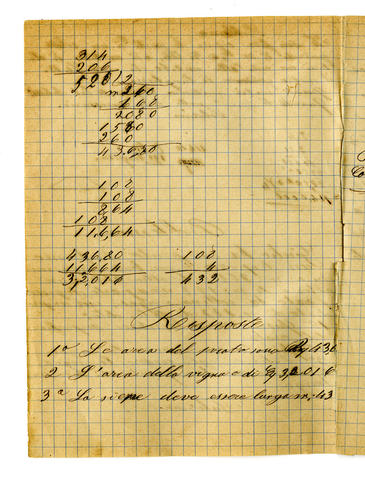 314
206
520 2
m 260
168
2080
1560
260
436,80
108
108
864
108
116,64
436,80 108
11664 4
32,016 432
Risposte
1ª Le area del prato sono 436
2 L'area della vigna è di 32016
3ª La siepe deve essere lunga m. 43